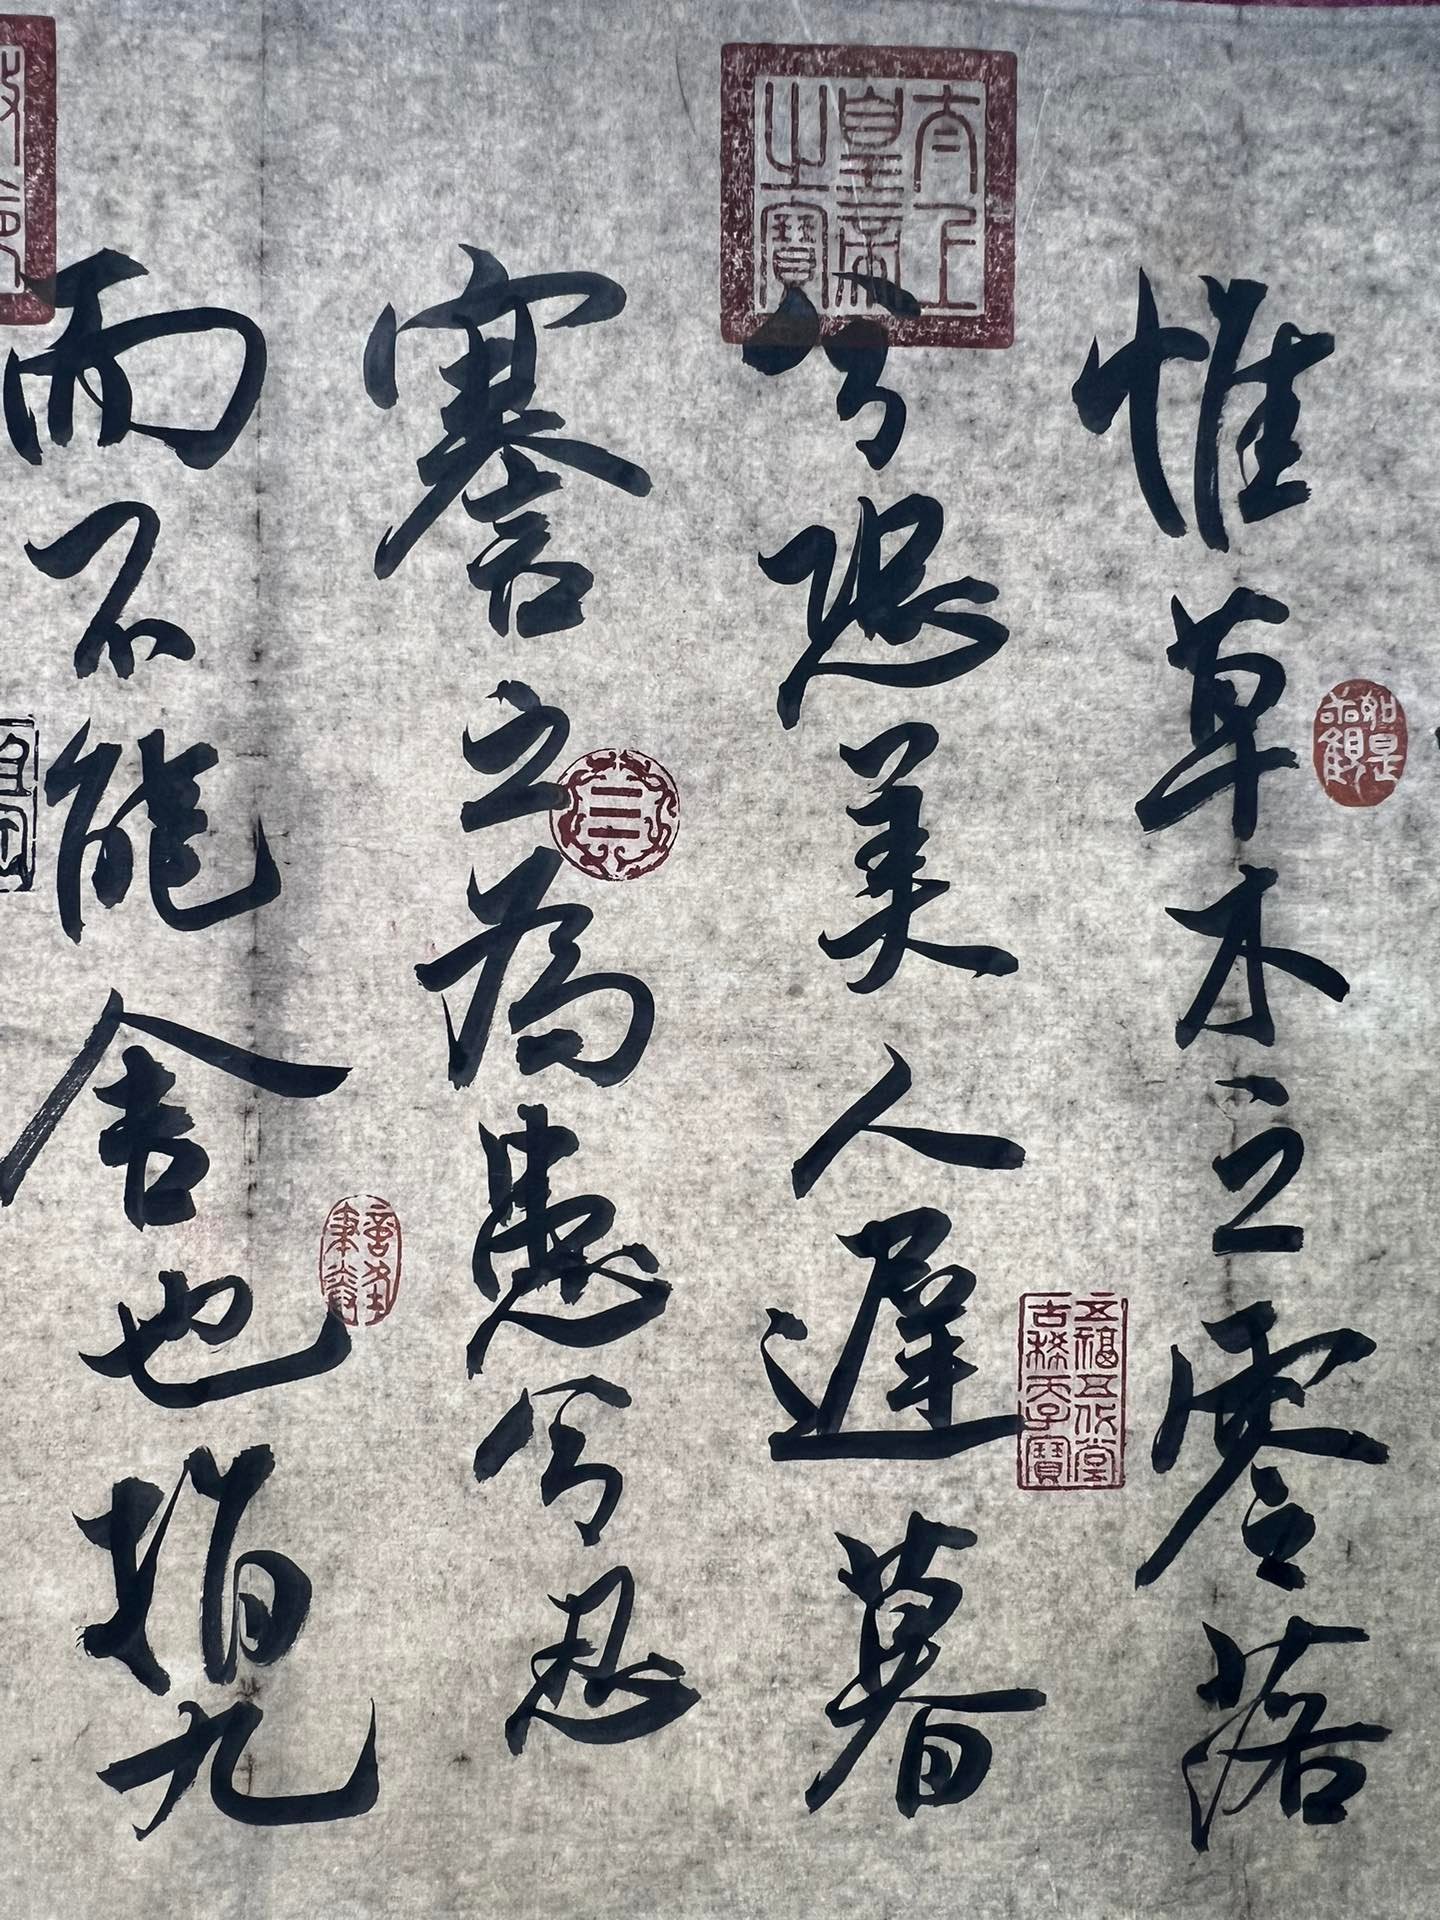 惟草木之零落
兮恐美人遲暮
謇之為患兮忍
而不能舍也指九
太上皇帝之寶
如是觀
五福五代堂古稀天子寶
三